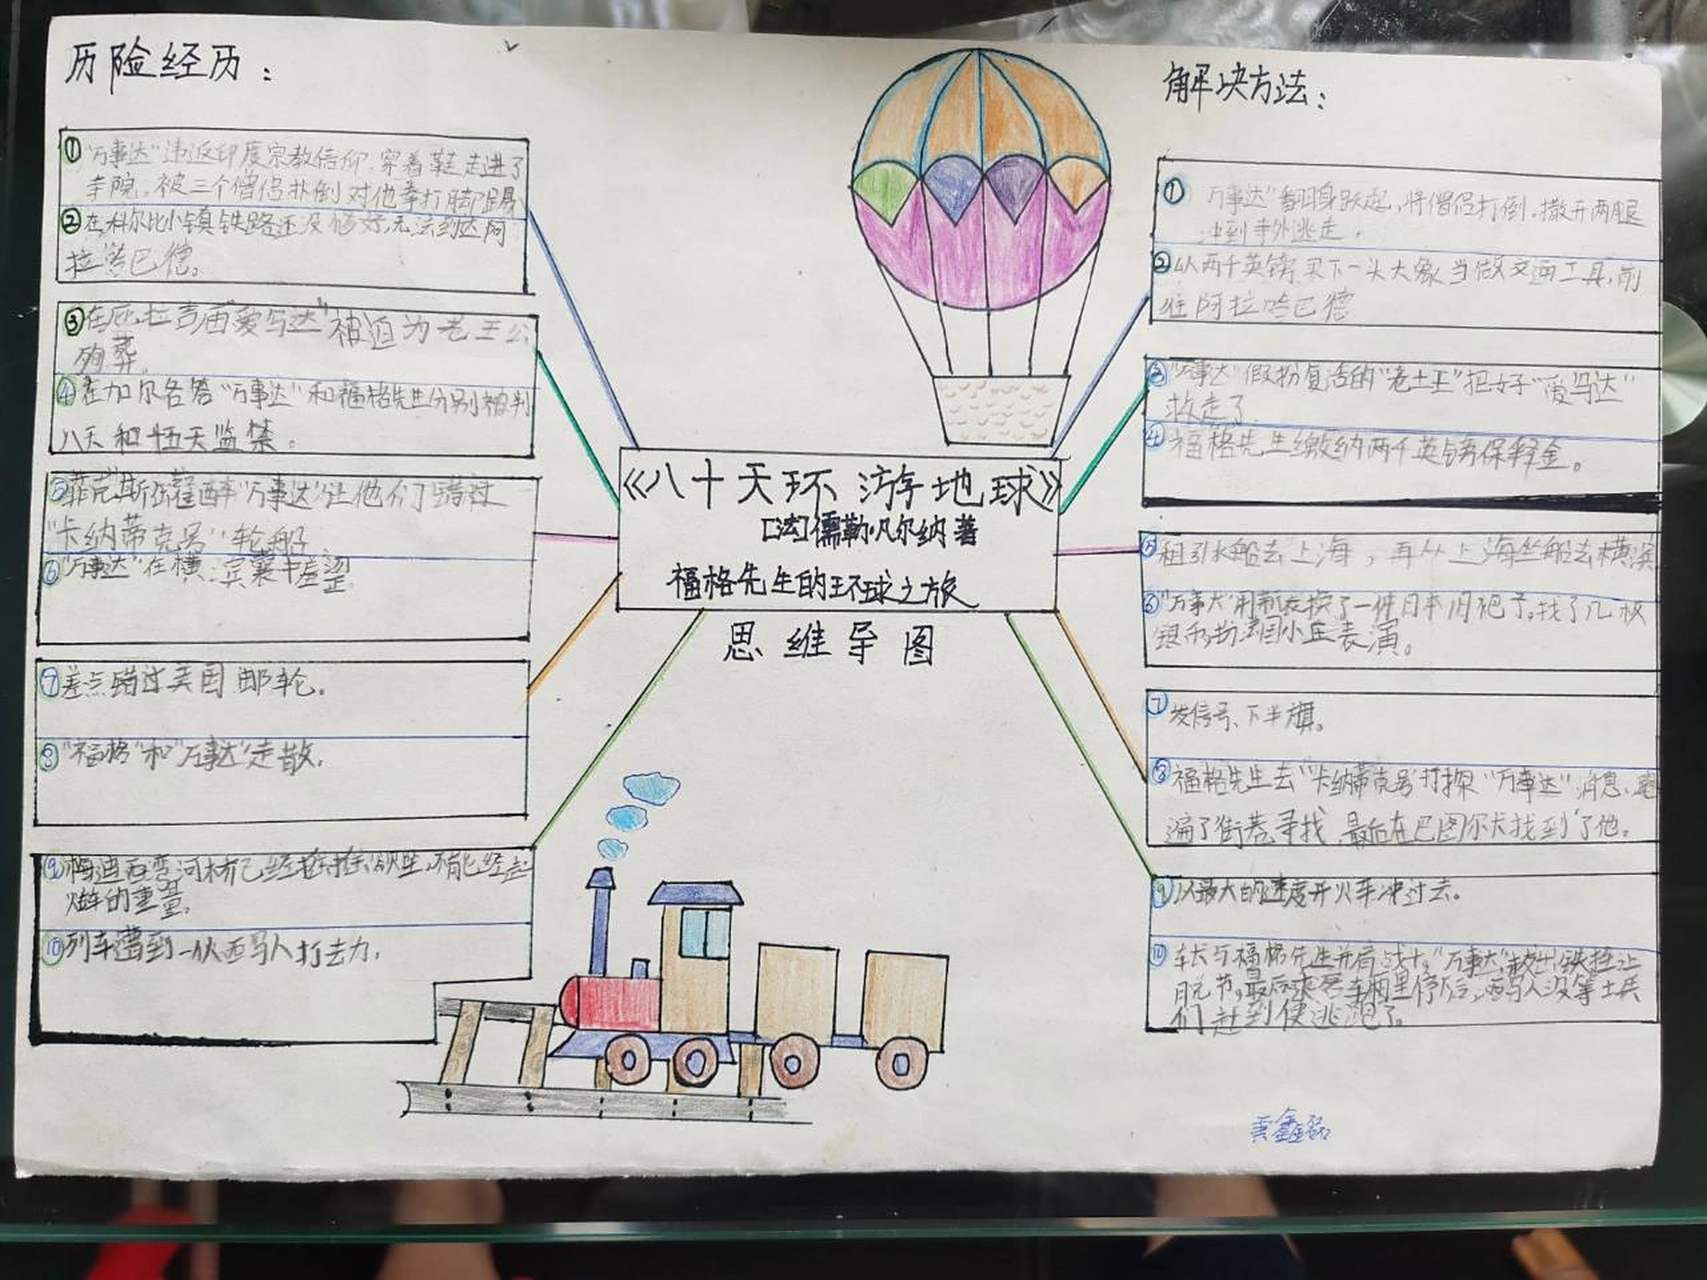 历险经历：
①"万事达"违返印度宗教信仰，穿着鞋走进了
寺院。被三个僧侣扑倒对他拳打脚踢
②在科尔比小镇铁路还没修好，无法到达阿
拉哈巴德。
③在 "爱写达"被迫为老王公
殉葬。
④在加尔各答"万事达"和福格先生分别被判
八天和 天监禁。
⑤菲克斯 醉"万事达"让他们错过
"卡纳蒂克号"轮船
⑥"万事达"在横滨囊中羞涩
⑦差点错过美国邮轮。
⑧"福格"和"万事达"走散。
⑨梅迪西弯河 已经摇摇欲坠，不能已经起
火车的重量。
⑩列车遭到一伙西写人打劫。
《八十天环游地球》
[法]儒勒·凡尔纳著
福格先生的环球之旅
思维导图
解决方法：
①万事达"翻身跃起，将僧侣打倒，撒开两腿
冲到寺外逃走。
②以两千英镑买下一头大象当做交通工具，前
往阿拉哈巴德
③"万事达"假扮复活的"老土王"把女子"爱写达"
救走了
④福格先生缴纳两千英镑保释金。
⑤租引水船去上海，再从上海坐船去横滨
⑥"万事达"用 换了一件日本旧袍子，找了几枚
银币扮 小丑表演。
⑦发信号、下半旗。
⑧福格先生去"卡纳蒂克号"打探"万事达"消息、
遍了街巷寻找，最后在巴图尔夫找到了他。
⑨以最大的速度开火车冲过去。
⑩车长与福格先生并肩战斗，"万事达" 铁拴让
脱节，最后 停下后，西写人没等士兵
们赶到便逃跑了。